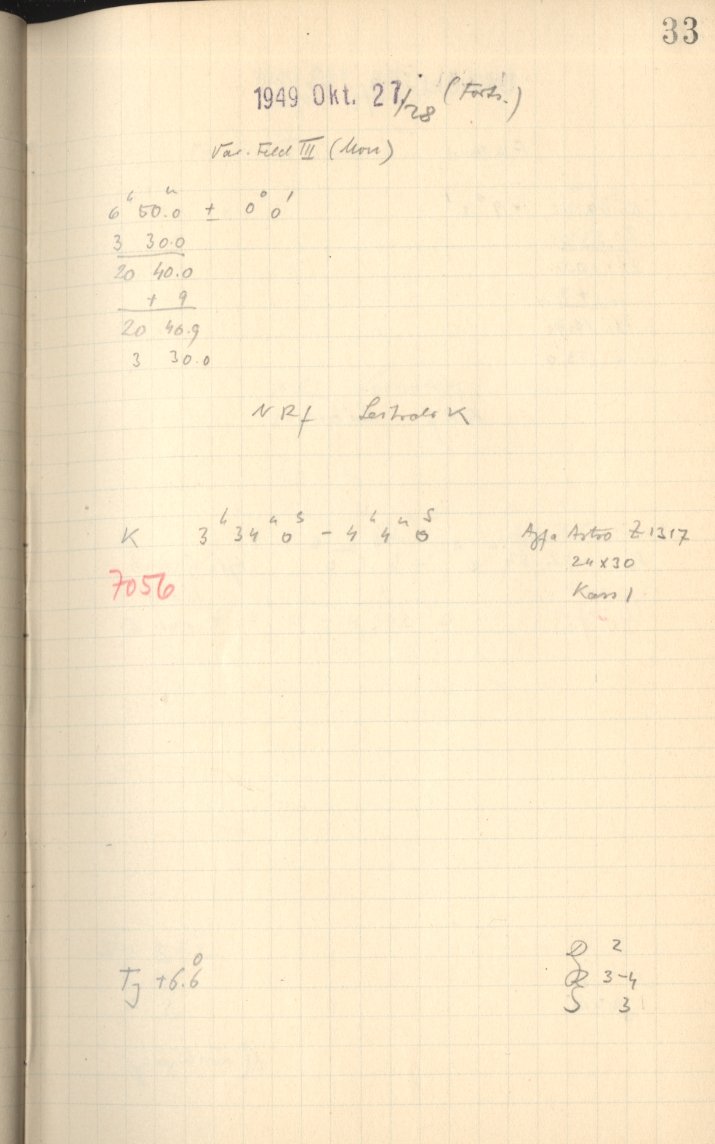 33
1949 Okt. 27/28 (Forts.)
Var. Feld III (Mon)
6h 50.m0 ± 0° 0'
3 30.0
20 40.0
+ 9
20 40.9
3 30.0
N Rf Leitrohr K
K 3h 34m 0s - 4h 4m 0s Agfa Astro Z 1317
7056 24x30
Kass 1
Tj +6.6°
D 2
R 3-4
S 3